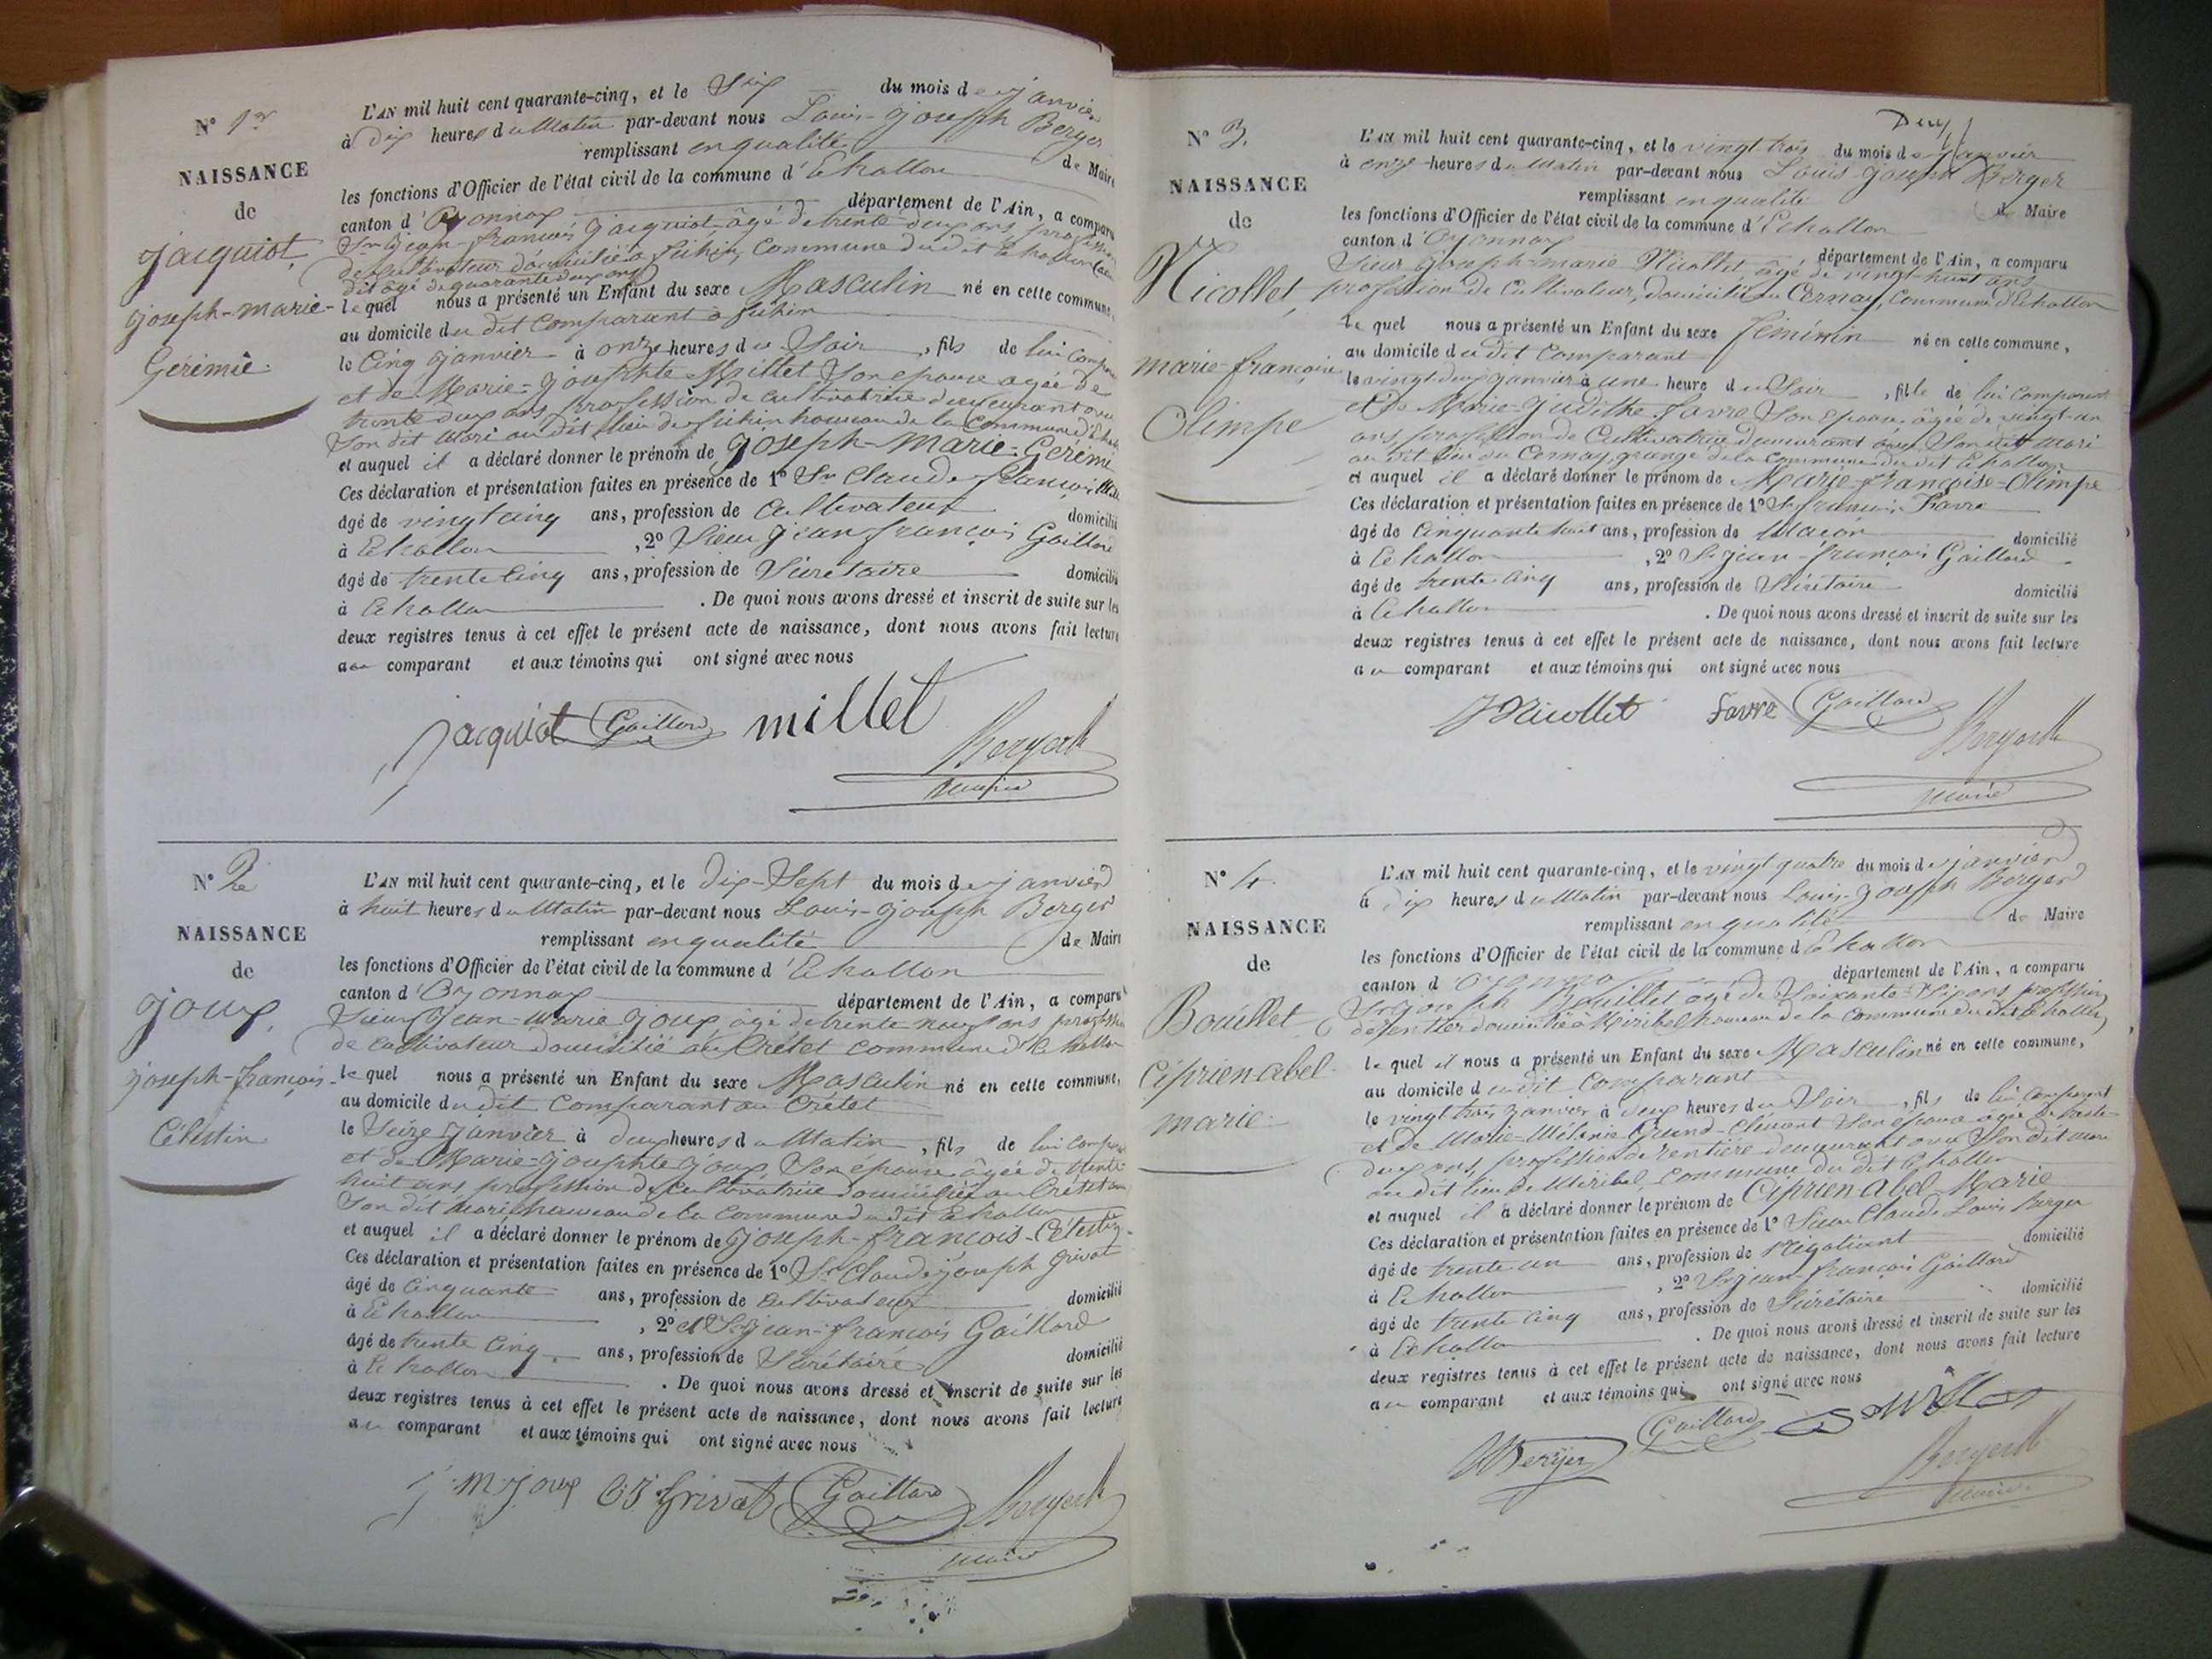 N° 1er
NAISSANCE
de
Jacquiot
Joseph-marie-
Gérémie
L'AN mil huit cent quarante-cinq, et le Six du mois de janvier
à Dix heures du Matin par-devant nous Louis-Joseph Berger
remplissant en qualité de Maire
les fonctions d'Officier de l'état civil de la commune d'Echallon
canton d'Oyonnax département de l'Ain, a comparu
Sr Jean-françois Jacquiot âgé de trente deux ans profession
de Cultivateur domicilié à commune du dit Echallon
dit âgé de quarante deux ans
lequel nous a présenté un Enfant du sexe Masculin né en cette commune,
au domicile du dit Comparant à
le Cinq Janvier à onze heures du Soir, fils de lui Comparant
et de Marie-Josephte Millet Son épouse agée de
trente deux ans, profession de cultivatrice demeurant avec
Son dit Mari au dit lieu de hameau de la Commune d'Echallon
et auquel il a déclaré donner le prénom de Joseph-Marie-Gérémie
Ces déclaration et présentation faites en présence de 1° Sr Claude françois Millet
âgé de vingt cinq ans, profession de Cultivateur domicilié
à Echallon, 2° Sieur Jean françois Gaillard
âgé de trente Cinq ans, profession de Sécrétaire domicilié
à Echallon. De quoi nous avons dressé et inscrit de suite sur les
deux registres tenus à cet effet le présent acte de naissance, dont nous avons fait lecture
au comparant et aux témoins qui ont signé avec nous
Jacquiot Gaillard millet
Berger
maire
N° 2e
NAISSANCE
de
Joux,
Joseph-françois-
Célestin
L'AN mil huit cent quarante-cinq, et le Dix-Sept du mois de janvier
à huit heures du Matin par-devant nous Louis-Joseph Berger
remplissant en qualité de Maire
les fonctions d'Officier de l'état civil de la commune d'Echallon
canton d'Oyonnax département de l'Ain, a comparu
Sieur Jean-Marie Joux, âgé de trente neuf ans profession
de Cultivateur domicilié au Crétet commune d'Echallon
lequel nous a présenté un Enfant du sexe Masculin né en cette commune,
au domicile du dit Comparant au Crétet
le Seize Janvier à deux heures du Matin, fils de lui Comparant
et de Marie-Josephte Joux Son épouse âgée de trente
huit ans, profession de Cultivatrice domiciliée au Crétet
Son dit Mari, hameau de la Commune du dit Echallon
et auquel il a déclaré donner le prénom de Joseph-françois-Célestin
Ces déclaration et présentation faites en présence de 1° Sr Claude Joseph Grivat
âgé de Cinquante ans, profession de Cultivateur domicilié
à Echallon, 2° et Sr Jean-françois Gaillard
âgé de trente Cinq ans, profession de Sécrétaire domicilié
à Echallon. De quoi nous avons dressé et inscrit de suite sur les
deux registres tenus à cet effet le présent acte de naissance, dont nous avons fait lecture
au comparant et aux témoins qui ont signé avec nous
j m joux C J Grivat Gaillard Berger
maire
Deux
N° 3.
NAISSANCE
de
Nicollet,
marie-françoise
Olimpe
L'AN mil huit cent quarante-cinq, et le vingt trois du mois de janvier
à onze heures du Matin par-devant nous Louis-Joseph Berger
remplissant en qualité de Maire
les fonctions d'Officier de l'état civil de la commune d'Echallon
canton d'Oyonnax département de l'Ain, a comparu
Sieur Joseph-marie Nicollet, âgé de vingt huit ans
profession de Cultivateur, domicilié au Cernay, Commune d'Echallon
lequel nous a présenté un Enfant du sexe féminin né en cette commune,
au domicile du dit Comparant
le vingt deux janvier à une heure du Soir, fille de lui Comparant
et de Marie-Judithe Favre Son épouse âgée de vingt-un
ans, profession de Cultivatrice demeurant avec Son dit mari
au dit lieu du Cernay, grange de la Commune du dit Echallon
et auquel il a déclaré donner le prénom de Marie-françoise-Olimpe
Ces déclaration et présentation faites en présence de 1° Sr françois Favre
âgé de Cinquante huit ans, profession de Maçon domicilié
à Echallon, 2° Sr Jean-françois Gaillard
âgé de trente cinq ans, profession de Sécrétaire domicilié
à Echallon. De quoi nous avons dressé et inscrit de suite sur les
deux registres tenus à cet effet le présent acte de naissance, dont nous avons fait lecture
au comparant et aux témoins qui ont signé avec nous
J Nicollet Favre Gaillard
Berger
maire
N° 4.
NAISSANCE
de
Bouillet
Ciprien abel
marie
L'AN mil huit cent quarante-cinq, et le vingt quatre du mois de janvier
à Dix heures du Matin par-devant nous Louis-Joseph Berger
remplissant en qualité de Maire
les fonctions d'Officier de l'état civil de la commune d'Echallon
canton d'Oyonnax département de l'Ain, a comparu
Sr Joseph Bouillet âgé de Soixante-Six ans profession
de rentier domicilié à Miribel hameau de la Commune du dit Echallon
lequel il nous a présenté un Enfant du sexe Masculin né en cette commune,
au domicile du dit Comparant
le vingt trois janvier à deux heures du Soir, fils de lui Comparant
et de Marie-Mélanie Grand-Clément Son épouse agée de trente
deux ans, profession de rentière demeurant avec Son dit mari
au dit lieu de Miribel, Commune du dit Echallon
et auquel il a déclaré donner le prénom de Ciprien-abel-Marie
Ces déclaration et présentation faites en présence de 1° Sieur Claude Louis Berger
âgé de trente un ans, profession de Négotiant domicilié
à Echallon, 2° Sr Jean-françois Gaillard
âgé de trente cinq ans, profession de Sécrétaire domicilié
à Echallon. De quoi nous avons dressé et inscrit de suite sur les
deux registres tenus à cet effet le présent acte de naissance, dont nous avons fait lecture
au comparant et aux témoins qui ont signé avec nous
Berger Gaillard
Berger
maire